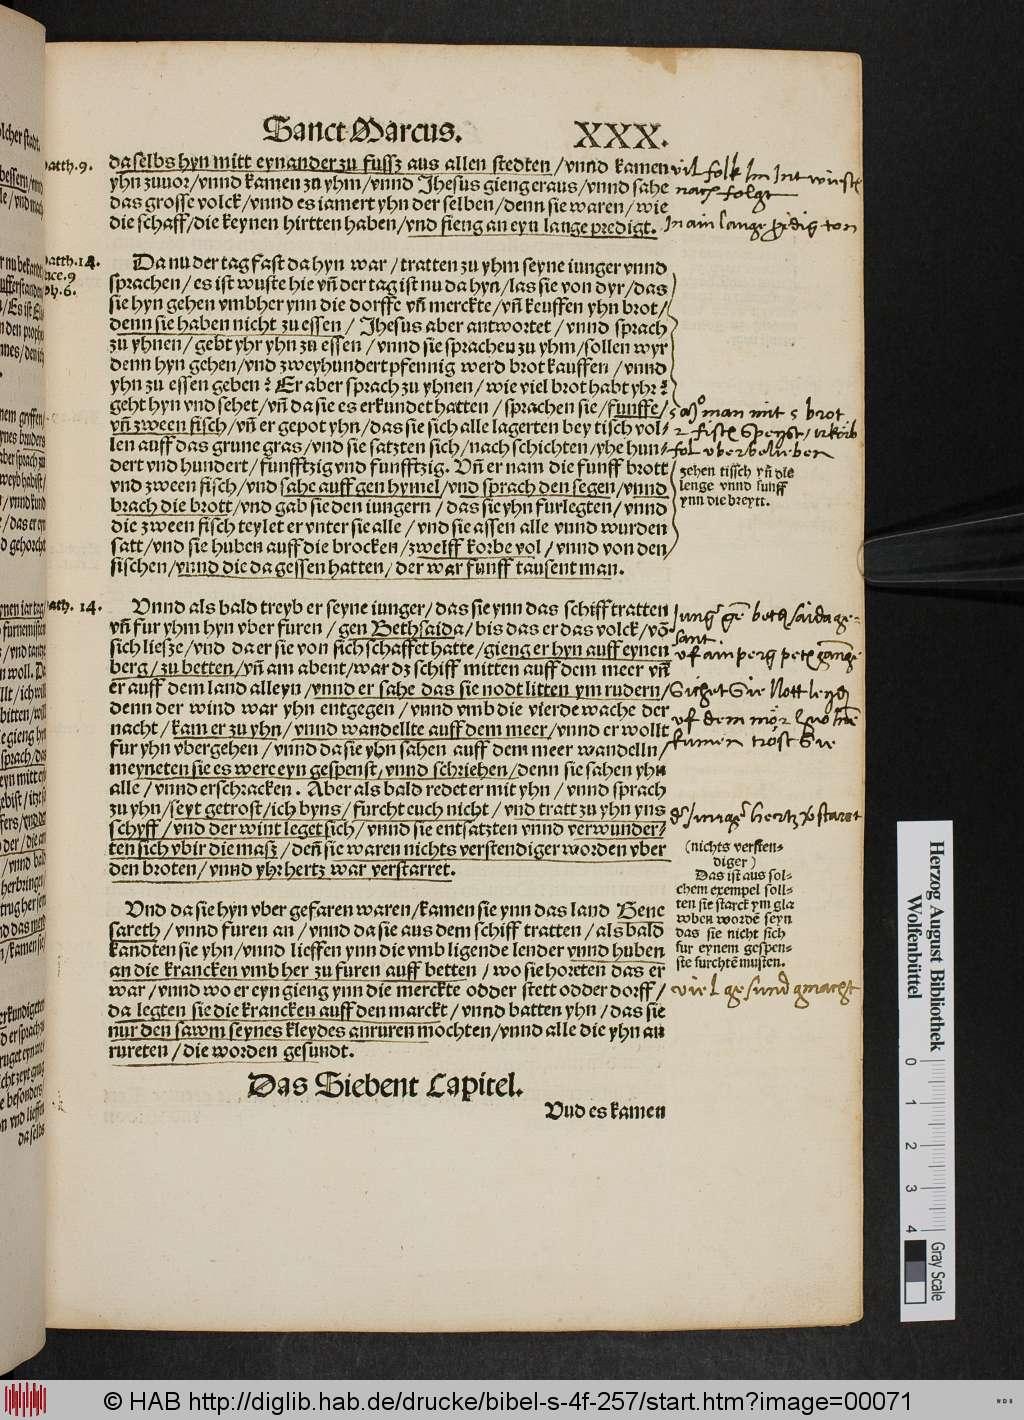 Sanct Marcus. XXX.
Matth. 9.
daselbs hyn mitt eynander zu fussz aus allen stedten / vnnd kamen
yhn zuuor / vnnd kamen zu yhm / vnnd Jhesus gieng eraus / vnnd sahe
das grosse volck / vnnd es iamert yhn der selben / denn sie waren / wie
die schaff / die keynen hirtten haben / vnd fieng an eyn lange predigt.
vil folk
nach folgt
in ain lange predig ton
Matth. 14.
Luce. 9
Joh. 6.
Da nu der tag fast da hyn war / tratten zu yhm seyne iunger vnnd
sprachen / es ist wuste hie vn̄ der tag ist nu da hyn / las sie von dyr / das
sie hyn gehen vmbher ynn die dorffe vn̄ merckte / vn̄ keuffen yhn brot /
denn sie haben nicht zu essen / Jhesus aber antwortet / vnnd sprach
zu yhnen / gebt yhr yhn zu essen / vnnd sie sprachen zu yhm / sollen wyr
denn hyn gehen / vnd zweyhundert pfennig werd brot kauffen / vnnd
yhn zu essen geben? Er aber sprach zu yhnen / wie viel brot habt yhr?
geht hyn vnd sehet / vn̄ da sie es erkundet hatten / sprachen sie / funffe /
vn̄ zween fisch / vn̄ er gepot yhn / das sie sich alle lagerten bey tisch vol-
len auff das grune gras / vnd sie satzten sich / nach schichten / yhe hun-
dert vnd hundert / funfftzig vnd funfftzig. Vn̄ er nam die funff brott
vnd zween fisch / vnd sahe auff gen hymel / vnd sprach den segen / vnnd
brach die brott / vnd gab sie den iungern / das sie yhn furlegten / vnnd
die zween fisch teylet er vnter sie alle / vnd sie assen alle vnnd wurden
satt / vnd sie huben auff die brocken / zwelff korbe vol / vnnd von den
fischen / vnnd die da gessen hatten / der war funff tausent man.
man mit 5 brot
2 fisch speyst / 12 körb
fol vberbeliben
zehen tissch vn̄ die
lenge vnnd funff
ynn die breytt.
Math. 14.
Vnnd als bald treyb er seyne iunger / das sie ynn das schiff tratten
vn̄ fur yhm hyn vber furen / gen Bethsaida / bis das er das volck / vō
sich liesze / vnd da er sie von sich schaffet hatte / gieng er hyn auff eynen
berg / zu betten / vn̄ am abent / war dz schiff mitten auff dem meer vn̄
er auff dem land alleyn / vnnd er sahe das sie nodt litten ym rudern /
denn der wind war yhn entgegen / vnnd vmb die vierde wache der
nacht / kam er zu yhn / vnnd wandellte auff dem meer / vnnd er wollt
fur yhn vbergehen / vnnd da sie yhn sahen auff dem meer wandelln /
meyneten sie es were eyn gespenst / vnnd schriehen / denn sie sahen yhn
alle / vnnd erschracken. Aber als bald redet er mit yhn / vnnd sprach
zu yhn / seyt getrost / ich byns / furcht euch nicht / vnd tratt zu yhn yns
schyff / vnd der wint leget sich / vnnd sie entsatzten vnnd verwunder-
ten sich vbir die masz / den̄ sie waren nichts verstendiger worden vber
den broten / vnnd yhr hertz war verstarret.
bethsaida ge-
sant.
vf ain perg
Sichet Sie Nott
vf dem mör
kumen tröst Sie
hertz verstarrt
(nichts versten-
diger)
Das ist aus sol-
chem exempel soll-
ten sie starck ym gla
wben wordē seyn
das sie nicht sich
fur eynem gespen-
ste furchtē musten.
Vnd da sie hyn vber gefaren waren / kamen sie ynn das land Gene
sareth / vnnd furen an / vnnd da sie aus dem schiff tratten / als bald
kandten sie yhn / vnnd lieffen ynn die vmb ligende lender vnnd huben
an die krancken vmb her zu furen auff betten / wo sie horeten das er
war / vnnd wo er eyn gieng ynn die merckte odder stett odder dorff /
da legten sie die krancken auff den marckt / vnnd batten yhn / das sie
nur den sawm seynes kleydes anruren mochten / vnnd alle die yhn an
rureten / die worden gesundt.
viel gesund gmacht
Das Siebent Capitel.
Vnd es kamen
Herzog August Bibliothek
Wolfenbüttel
0 1 2 3 4
Gray Scale
© HAB http://diglib.hab.de/drucke/bibel-s-4f-257/start.htm?image=00071